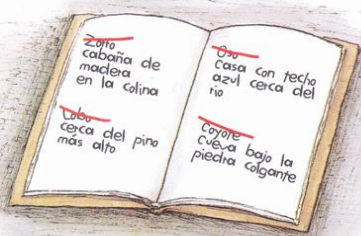 Zorro
cabaña de
madera
en la colina
Lobo
cerca del pino
más alto
Oso
casa con techo
azul cerca del
río
Coyote
Cueva bajo la
piedra colgante